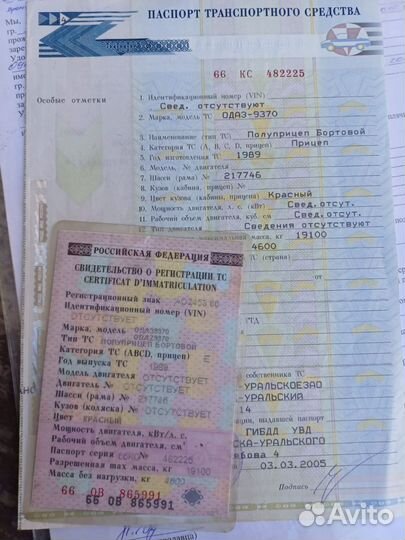 ПАСПОРТ ТРАНСПОРТНОГО СРЕДСТВА
66 КС 482225
Особые отметки
1. Идентификационный номер (VIN)
Свед. отсутствуют
2. Марка, модель ТС ОДАЗ-9370
3. Наименование (тип ТС) Полуприцеп Бортовой
4. Категория ТС (А, В, С, D, прицеп) Прицеп
5. Год изготовления ТС 1989
6. Модель, № двигателя
7. Шасси (рама) № 217746
8. Кузов (кабина, прицеп) №
9. Цвет кузова (кабины, прицепа) Красный
10. Мощность двигателя, л. с. (кВт) Свед.отсут.
11. Рабочий объем двигателя, куб. см Свед.отсут.
12. Тип двигателя Сведения отсутствуют
масса, кг 19100
4600
ТС (страна)
ГТД
собственника ТС
-УРАЛЬСКОЕЗАО
-УРАЛЬСКИЙ
14
выдавшей паспорт
ГИБДД УВД
СКА-УРАЛЬСКОГО
бова 4
03.03.2005
Подпись
РОССИЙСКАЯ ФЕДЕРАЦИЯ
СВИДЕТЕЛЬСТВО О РЕГИСТРАЦИИ ТС
CERTIFICAT D'IMMATRICULATION
Регистрационный знак
Идентификационный номер (VIN)
ОТСУТСТВУЕТ
Марка, модель ОДАЗ9370
Тип ТС ПОЛУПРИЦЕП БОРТОВОЙ
Категория ТС (ABCD, прицеп) E
Год выпуска ТС 1989
Модель двигателя ОТСУТСТВУЕТ
Двигатель № ОТСУТСТВУЕТ
Шасси (рама) № 217746
Кузов (коляска) № ОТСУТСТВУЕТ
Цвет КРАСНЫЙ
Мощность двигателя, кВт/л. с.
Рабочий объем двигателя, см³
Паспорт серия 66КС № 482225
Разрешенная max масса, кг 19100
Масса без нагрузки, кг 4600
66 ОВ 865991
66 ОВ 865991
Avito